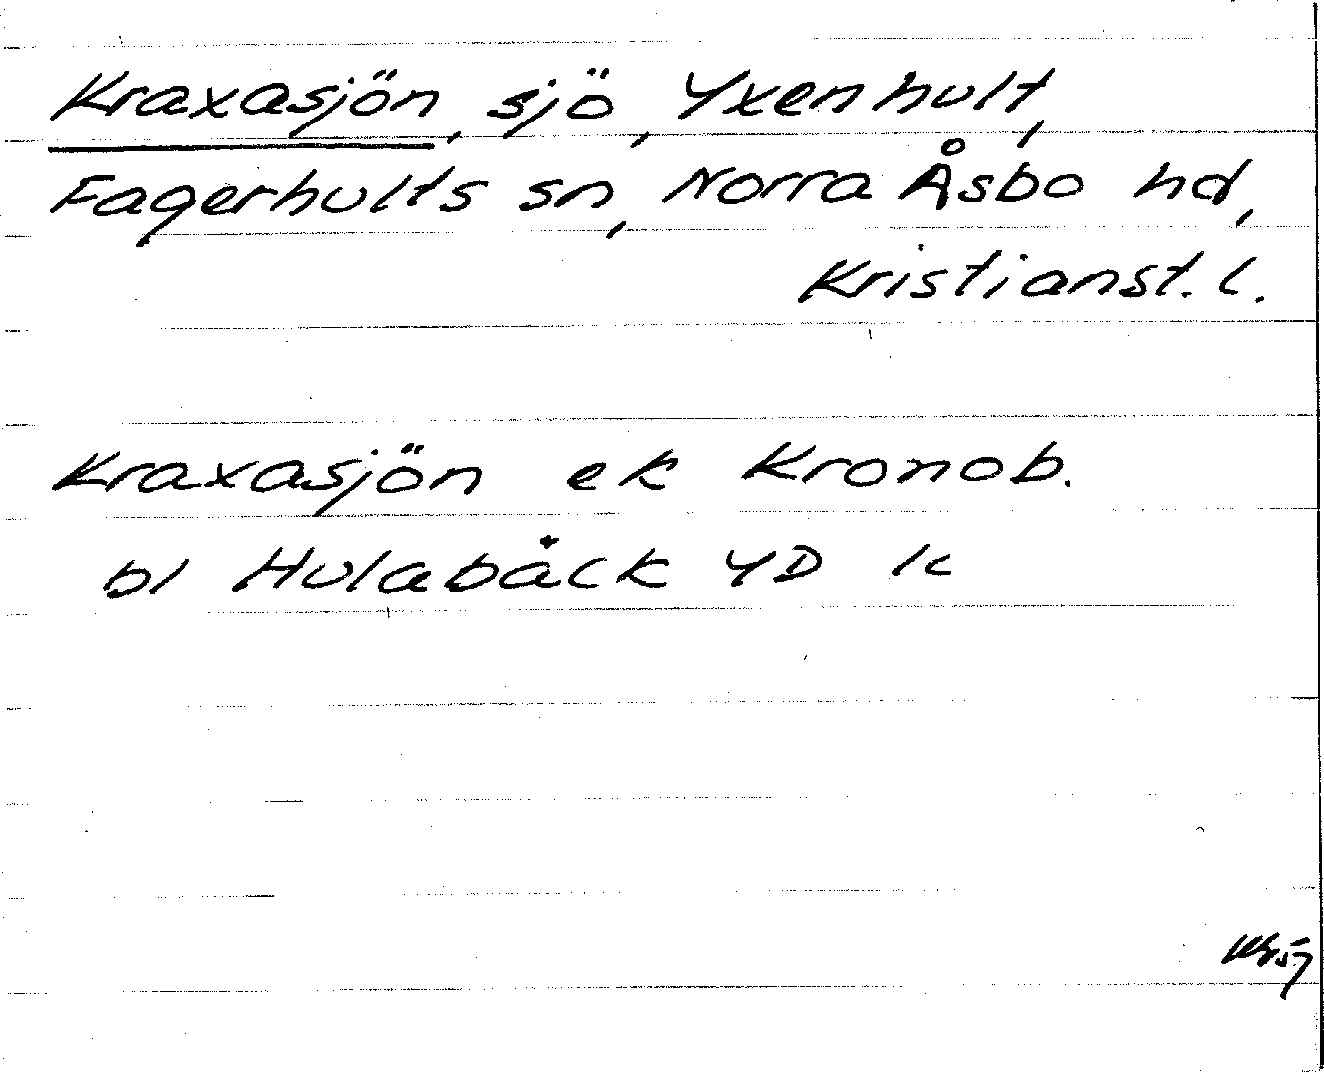 Kraxasjön, sjö, Yxenhult,
Fagerhults sn, Norra Åsbo hd,
Kristianst. l.
Kraxasjön ek Kronob.
bl Hulabäck 4D lc